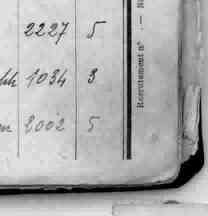 2227 5
1034 3
2002 5
Recrutement n° . — N